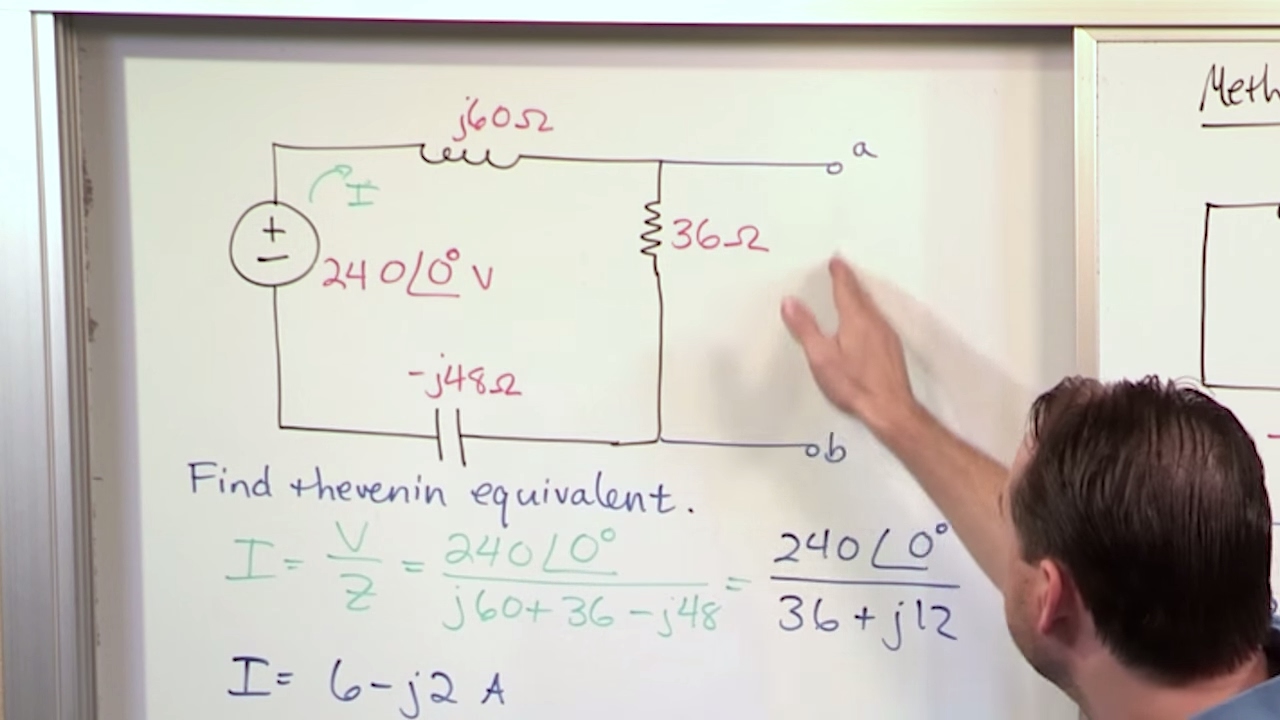 j60Ω
a
I
+
−
240∠0° V
36Ω
-j48Ω
b
Find thevenin equivalent.
I = V/Z = 240∠0° / j60+36-j48 = 240∠0° / 36+j12
I = 6-j2 A
Meth